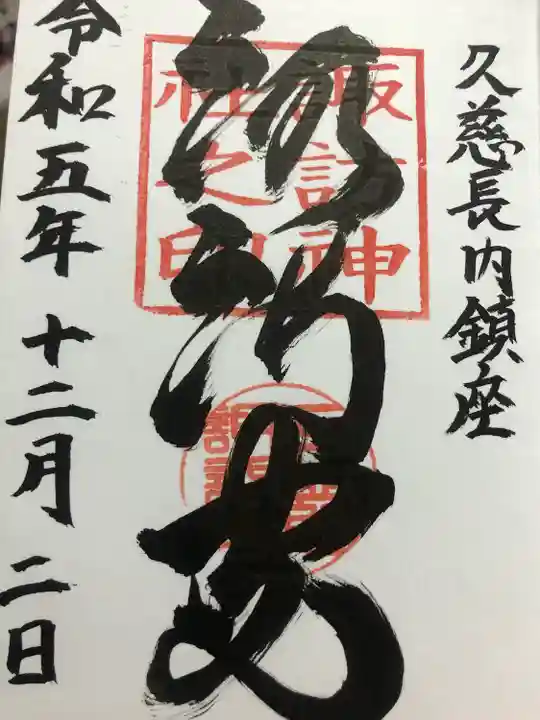 久慈長内鎮座
諏訪神社之印
諏訪宮
令和五年十二月二日